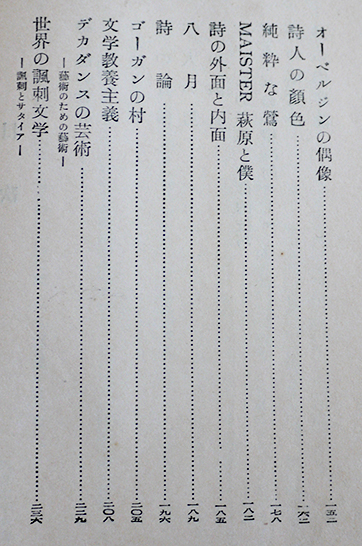 オーベルジンの偶像……一五二
詩人の顔色……一六二
純粋な鶯……一七八
MAISTER 萩原と僕……一八二
詩の外面と内面……一八五
八月……一八九
詩論……一九六
ゴーガンの村……二〇五
文学教養主義……二〇八
デカダンスの芸術……二二九
―藝術のための藝術―
世界の諷刺文学……二三六
―諷刺とサタイア―